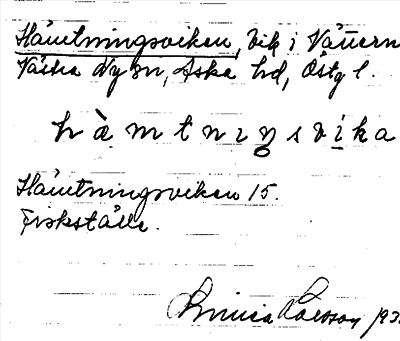 Hämtningsviken, vik i Vättern
Västra Ny sn, Aska hd, Östg l.
hà̤mtnıŋsvi̤ka
Hämtningsviken 15.
Fiskställe.
Linnea Larsson 193